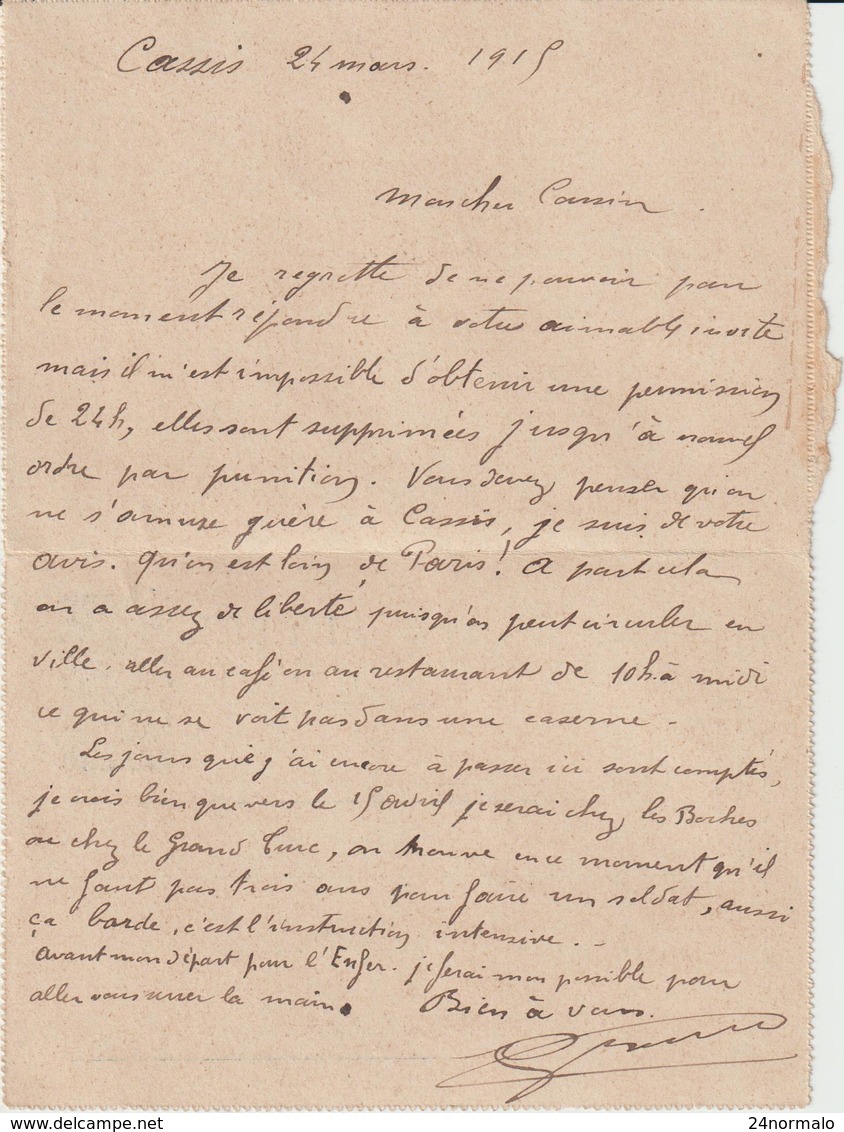 Cassis 24 mars. 1915
Mon cher Cassin
Je regrette de ne pouvoir pour
le moment répondre à votre aimable invite
mais il m'est impossible d'obtenir une permission
de 24h, elles sont supprimées jusqu'à nouvel
ordre par punition. Vous devez penser qu'on
ne s'amuse guère à Cassis, je suis de votre
avis. qu'on est loin de Paris! A part cela
on a assez de liberté puisqu'on peut circuler en
ville. aller au café ou au restaurant de 10h à midi
ce qui ne se voit pas dans une caserne.
Les jours que j'ai encore à passer ici sont comptés,
je crois bien que vers le 15 avril je serai chez les Boches
ou chez le Grand Turc, on trouve en ce moment qu'il
ne faut pas trois ans pour faire un soldat, aussi
ça barde, c'est l'instruction intensive. -
Avant mon départ pour l'Enfer. je ferai mon possible pour
aller vous serrer la main. Bien à vous.
24normalo
delcampe.net